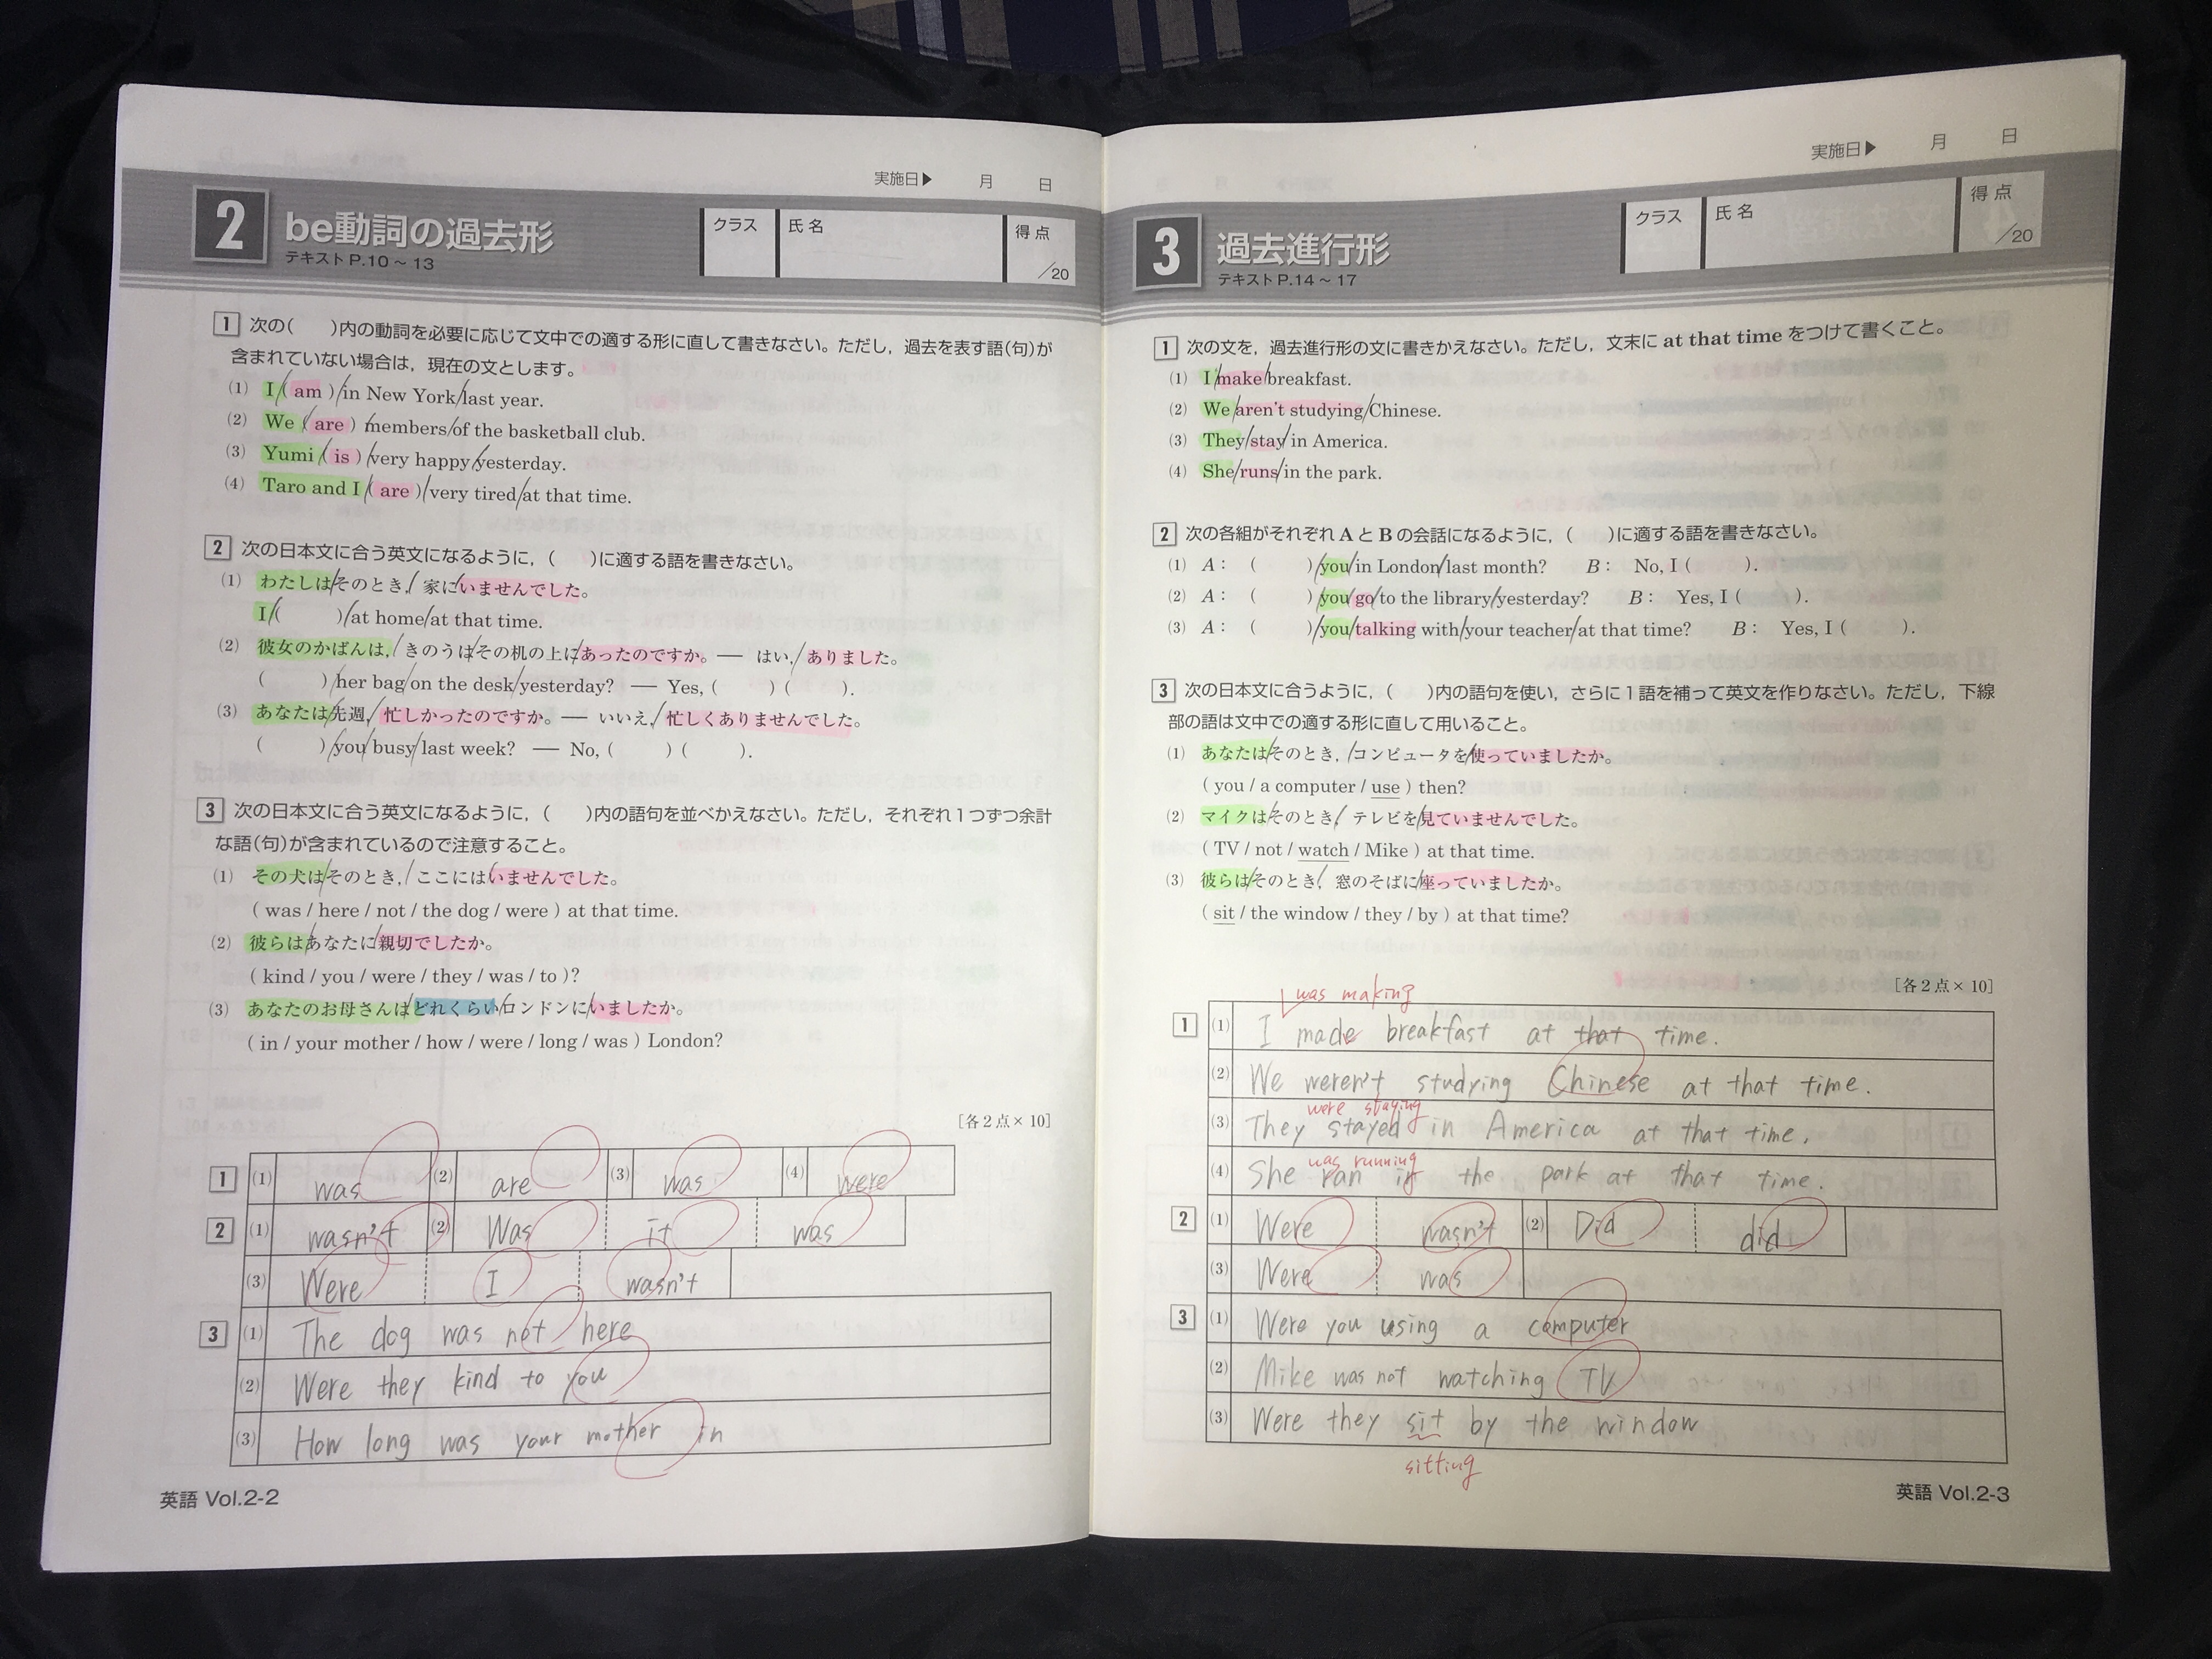 実施日▶ 月 日
2 be動詞の過去形
テキスト P.10～13
クラス 氏名 得点 /20
1 次の( )内の動詞を必要に応じて文中での適する形に直して書きなさい。ただし，過去を表す語(句)が
含まれていない場合は，現在の文とします。
(1) I/( am )/in New York/last year.
(2) We/( are )/members/of the basketball club.
(3) Yumi/( is )/very happy/yesterday.
(4) Taro and I/( are )/very tired/at that time.
2 次の日本文に合う英文になるように，( )に適する語を書きなさい。
(1) わたしは/そのとき，/家に/いませんでした。
I/( )/at home/at that time.
(2) 彼女のかばんは，/きのうは/その机の上に/あったのですか。— はい，/ありました。
( )/her bag/on the desk/yesterday? — Yes, ( ) ( ).
(3) あなたは/先週，/忙しかったのですか。— いいえ，/忙しくありませんでした。
( )/you/busy/last week? — No, ( ) ( ).
3 次の日本文に合う英文になるように，( )内の語句を並べかえなさい。ただし，それぞれ1つずつ余計
な語(句)が含まれているので注意すること。
(1) その犬は/そのとき，/ここには/いませんでした。
( was / here / not / the dog / were ) at that time.
(2) 彼らは/あなたに/親切でしたか。
( kind / you / were / they / was / to )?
(3) あなたのお母さんは/どれくらい/ロンドンに/いましたか。
( in / your mother / how / were / long / was ) London?
[各2点×10]
1 (1) was (2) are (3) was (4) were
2 (1) wasn't (2) Was it was
(3) Were I wasn't
3 (1) The dog was not here
(2) Were they kind to you
(3) How long was your mother in
英語 Vol.2-2
実施日▶ 月 日
3 過去進行形
テキスト P.14～17
クラス 氏名 得点 /20
1 次の文を，過去進行形の文に書きかえなさい。ただし，文末に at that time をつけて書くこと。
(1) I/make/breakfast.
(2) We/aren't studying/Chinese.
(3) They/stay/in America.
(4) She/runs/in the park.
2 次の各組がそれぞれ A と B の会話になるように，( )に適する語を書きなさい。
(1) A： ( )/you/in London/last month? B： No, I ( ).
(2) A： ( )/you/go/to the library/yesterday? B： Yes, I ( ).
(3) A： ( )/you/talking with/your teacher/at that time? B： Yes, I ( ).
3 次の日本文に合うように，( )内の語句を使い，さらに1語を補って英文を作りなさい。ただし，下線
部の語は文中での適する形に直して用いること。
(1) あなたは/そのとき，/コンピュータを/使っていましたか。
( you / a computer / use ) then?
(2) マイクは/そのとき，/テレビを/見ていませんでした。
( TV / not / watch / Mike ) at that time.
(3) 彼らは/そのとき，/窓のそばに/座っていましたか。
( sit / the window / they / by ) at that time?
[各2点×10]
was making
1 (1) I made breakfast at that time.
(2) We weren't studying Chinese at that time.
were staying
(3) They stayed in America at that time.
was running
(4) She ran in the park at that time.
2 (1) Were wasn't (2) Did did
(3) Were was
3 (1) Were you using a computer
(2) Mike was not watching TV
(3) Were they sit by the window
sitting
英語 Vol.2-3